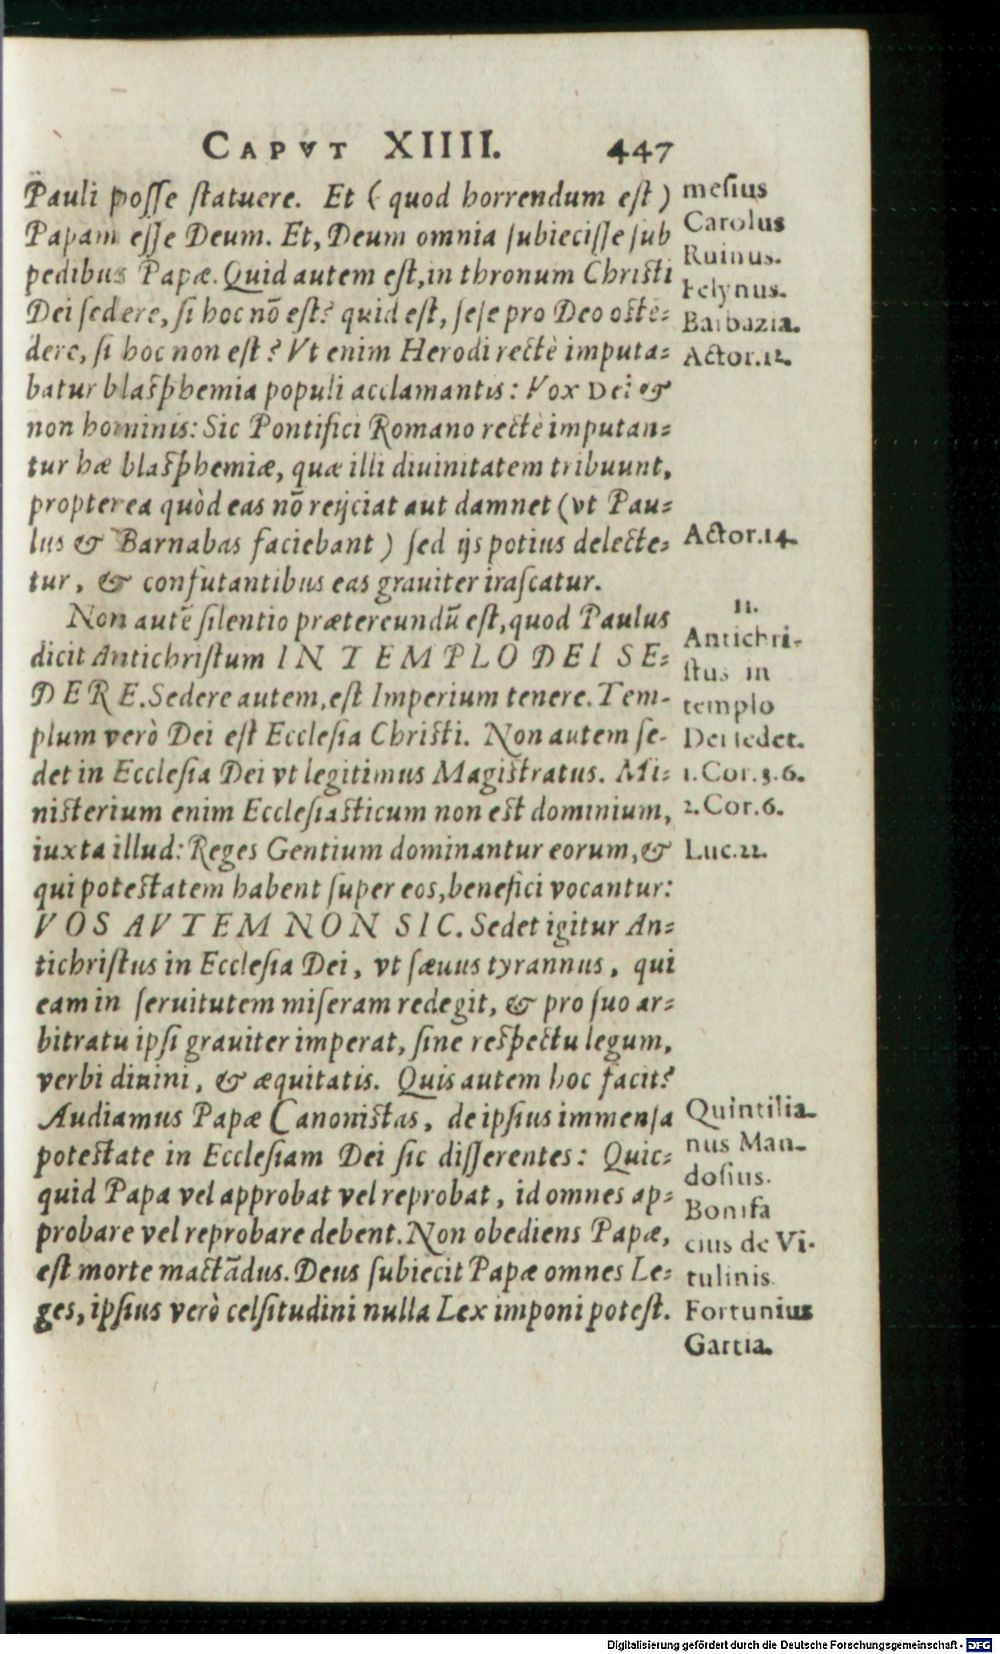 CAPVT XIIII. 447
Pauli posse statuere. Et (quod horrendum est)
Papam esse Deum. Et, Deum omnia subiecisse sub
pedibus Papæ. Quid autem est, in thronum Christi
Dei sedere, si hoc nõ est? quid est, sese pro Deo ostẽ=
dere, si hoc non est? Vt enim Herodi rectè imputa=
batur blasphemia populi acclamantis: Vox Dei &
non hominis: Sic Pontifici Romano rectè imputan=
tur hæ blasphemiæ, quæ illi diuinitatem tribuunt,
propterea quòd eas nõ reijciat aut damnet (vt Pau=
lus & Barnabas faciebant) sed ijs potius delecte=
tur, & confutantibus eas grauiter irascatur.
Non autẽ silentio prætereundũ est, quod Paulus
dicit Antichristum IN TEMPLO DEI SE=
DERE. Sedere autem, est Imperium tenere. Tem-
plum verò Dei est Ecclesia Christi. Non autem se-
det in Ecclesia Dei vt legitimus Magistratus. Mi=
nisterium enim Ecclesiasticum non est dominium,
iuxta illud: Reges Gentium dominantur eorum, &
qui potestatem habent super eos, benefici vocantur:
VOS AVTEM NON SIC. Sedet igitur An=
tichristus in Ecclesia Dei, vt sæuus tyrannus, qui
eam in seruitutem miseram redegit, & pro suo ar=
bitratu ipsi grauiter imperat, sine respectu legum,
verbi diuini, & æquitatis. Quis autem hoc facit?
Audiamus Papæ Canonistas, de ipsius immensa
potestate in Ecclesiam Dei sic disserentes: Quic=
quid Papa vel approbat vel reprobat, id omnes ap=
probare vel reprobare debent. Non obediens Papæ,
est morte mactãdus. Deus subiecit Papæ omnes Le=
ges, ipsius verò celsitudini nulla Lex imponi potest.
mesius
Carolus
Ruinus.
Felynus.
Barbazia.
Actor.12.
Actor.14.
11.
Antichri-
stus in
templo
Dei sedet.
1.Cor.3.6.
2.Cor.6.
Luc.22.
Quintilia-
nus Man-
dosius.
Bonifa
cius de Vi-
tulinis
Fortunius
Gartia.
Digitalisierung gefördert durch die Deutsche Forschungsgemeinschaft - DFG